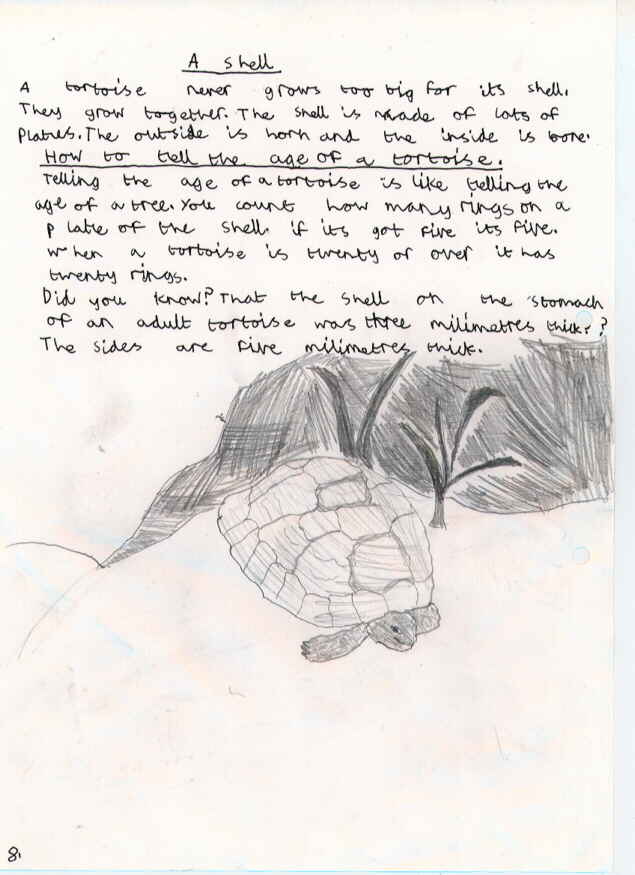 A shell
A tortoise never grows too big for its shell.
They grow together. The shell is made of lots of
plates. The outside is horn and the inside is bone.
How to tell the age of a tortoise.
Telling the age of a tortoise is like telling the
age of a tree. You count how many rings on a
plate of the shell. if its got five its five.
when a tortoise is twenty or over it has
twenty rings.
Did you know? That the shell on the stomach
of an adult tortoise was three milimetres thick??
The sides are five milimetres thick.
8.